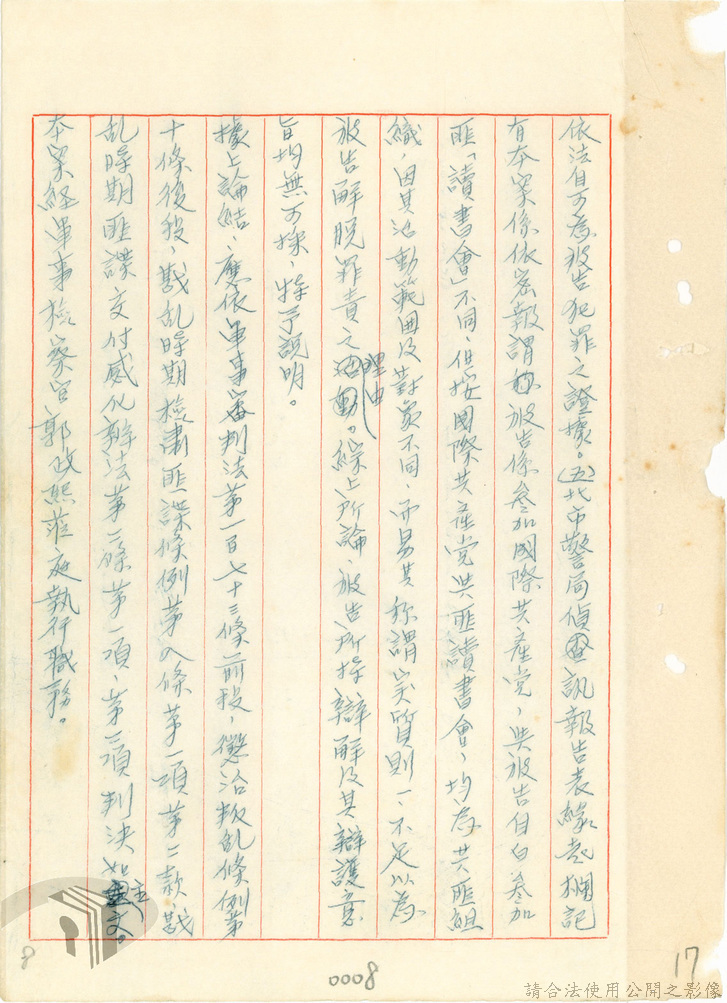 依法自可為被告犯罪之證據。(五)北市警局偵訊報告表緣起欄記
有本案係依密報謂被告係參加國際共產党，與被告自白參加
匪「讀書會」不同，但按國際共產党與匪讀書會，均為共匪組
織，因其活動範圍及對象不同，而易其称謂实質則一，不足以為
被告解脫罪責之理由。綜上所論，被告所持辯解及其辯護意
旨均無可採，特予說明。
據上論結，應依軍事審判法第一百七十三條前段，懲治叛乱條例第
十條後段，戡乱時期檢肅匪諜條例第八條第一項第二款，戡
乱時期匪諜交付感化辦法第二條第一項、第三項判決如主文。
本案經軍事檢察官郭政熙蒞庭執行職務。
8
0008
17
請合法使用公開之影像